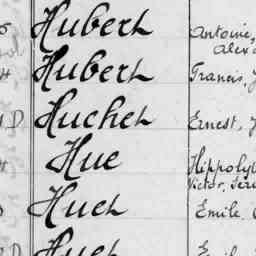 Hubert Antoine,
Alex
Hubert Francis, J
D Huchet Ernest, J
Hue Hippolyt
Victor,
Huet Emile.
D Huet Emile